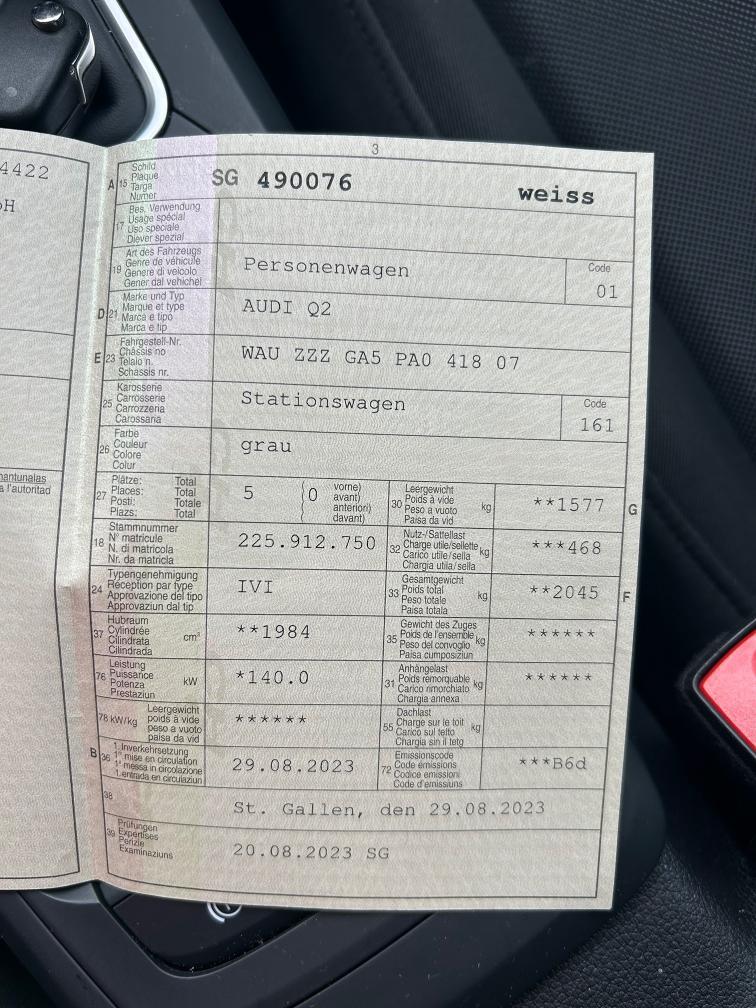 4422
3
A 15 Schild
Plaque
Targa
Numer
SG 490076 weiss
17 Bes. Verwendung
Usage spécial
Uso speciale
Diever spezial
19 Art des Fahrzeugs
Genre de véhicule
Genere di veicolo
Gener dal vehichel
Personenwagen
Code
01
D 21 Marke und Typ
Marque et type
Marca e tipo
Marca e tip
AUDI Q2
E 23 Fahrgestell-Nr.
Châssis no
Telaio n.
Schassis nr.
WAU ZZZ GA5 PA0 418 07
25 Karosserie
Carrosserie
Carrozzeria
Carossaria
Stationswagen
Code
161
26 Farbe
Couleur
Colore
Colur
grau
27 Plätze: Total
Places: Total
Posti: Totale
Plazs: Total
5 (0 vorne)
avant)
anteriori)
davant)
30 Leergewicht
Poids à vide
Peso a vuoto
Paisa da vid
kg
**1577
G
18 Stammnummer
N° matricule
N. di matricola
Nr. da matricla
225.912.750
32 Nutz-/Sattellast
Charge utile/sellette
Carico utile/sella
Chargia utila/sella
kg
***468
24 Typengenehmigung
Réception par type
Approvazione del tipo
Approvaziun dal tip
IVI
33 Gesamtgewicht
Poids total
Peso totale
Paisa totala
kg
**2045
F
37 Hubraum
Cylindrée
Cilindrata
Cilindrada
cm³
**1984
35 Gewicht des Zuges
Poids de l'ensemble
Peso del convoglio
Paisa cumposiziun
kg
******
76 Leistung
Puissance
Potenza
Prestaziun
kW
*140.0
31 Anhängelast
Poids remorquable
Carico rimorchiato
Chargia annexa
kg
******
78 kW/kg Leergewicht
poids à vide
peso a vuoto
paisa da vid
******
55 Dachlast
Charge sur le toit
Carico sul tetto
Chargia sin il tetg
kg
B 36 1. Inverkehrsetzung
1re mise en circulation
1a messa in circolazione
1. entrada en circulaziun
29.08.2023
72 Emissionscode
Code émissions
Codice emissioni
Code d'emissiuns
***B6d
38
St. Gallen, den 29.08.2023
39 Prüfungen
Expertises
Perizie
Examinaziuns
20.08.2023 SG